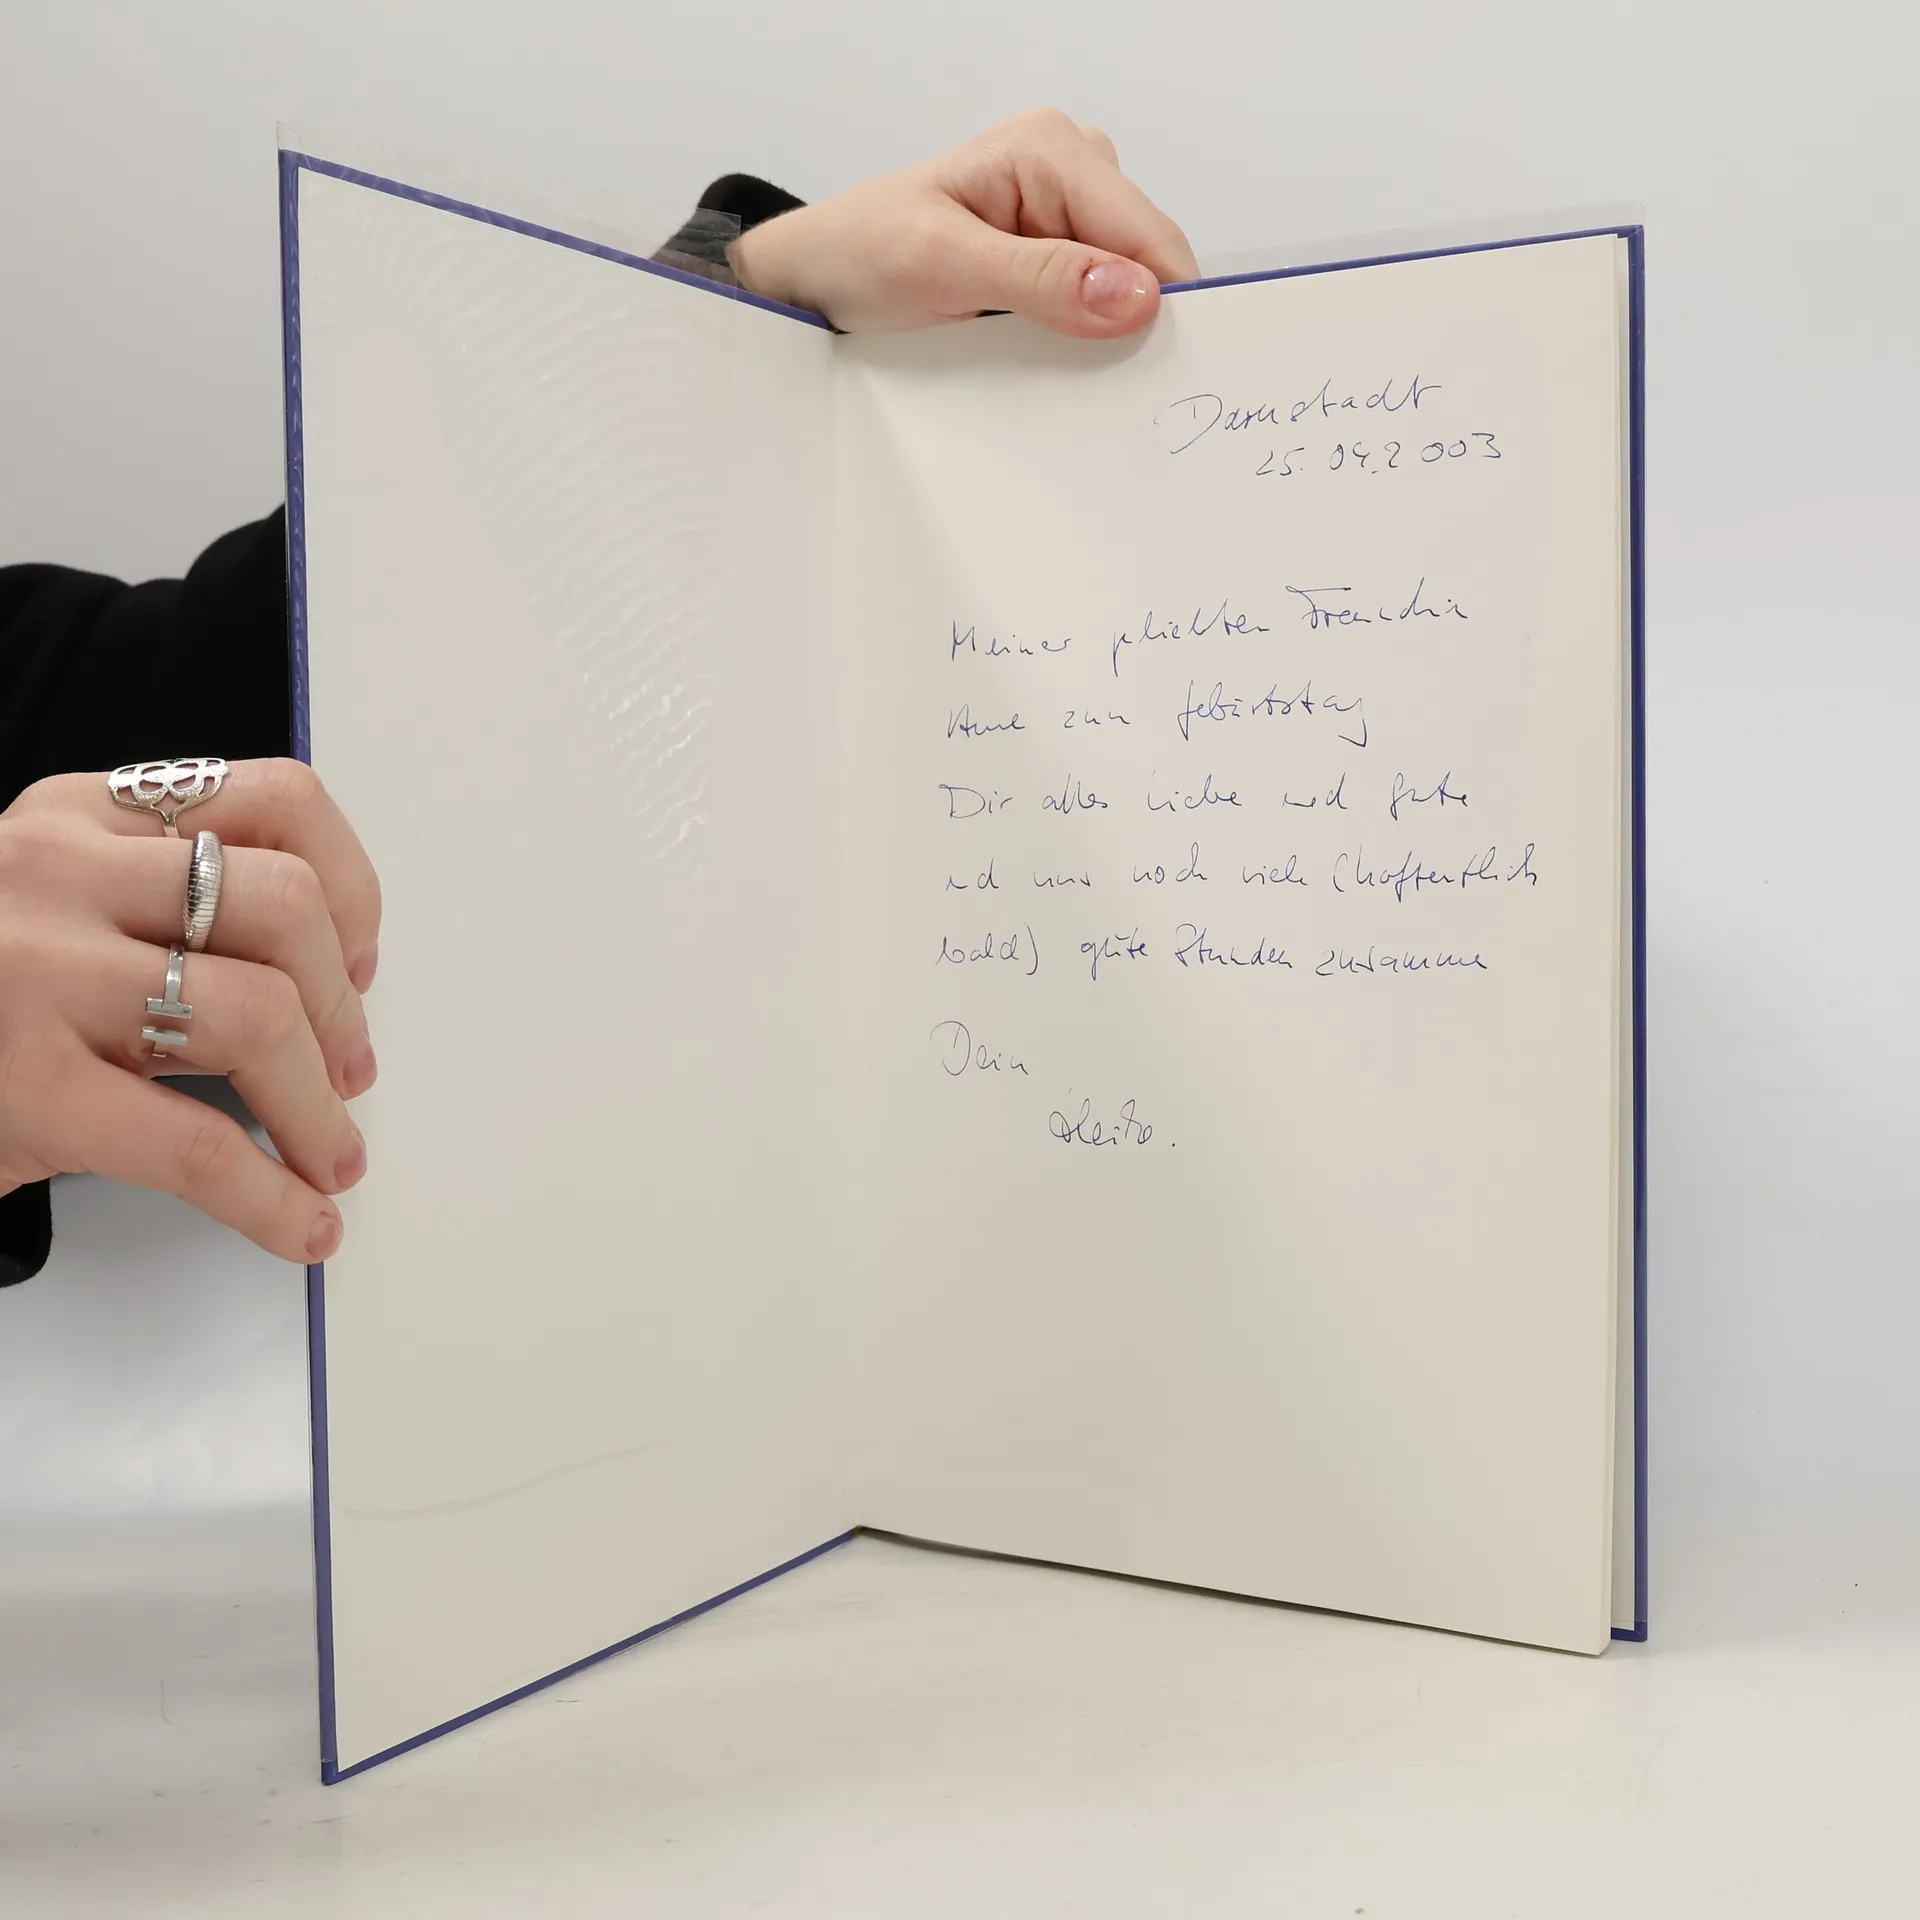 Darmstadt
25.04.2003
Meiner geliebten Freundin
Anne zum Geburtstag
Dir alles Liebe und Gute
und uns noch viele (hoffentlich
bald) gute Stunden zusammen
Dein